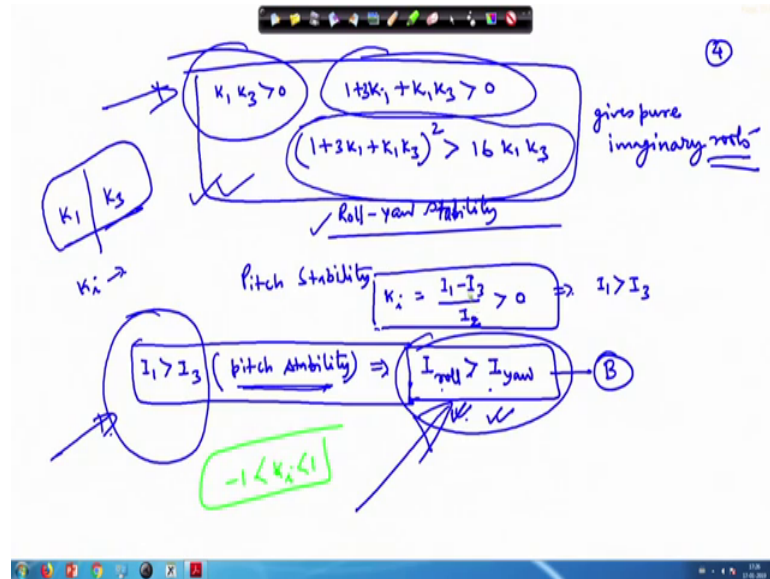 ④
K₁ K₃ > 0 1+3K₁ + K₁K₃ > 0
(1+3K₁+K₁K₃)² > 16 K₁K₃
gives pure
imaginary roots
K₁ | K₃
✓ Roll-yaw stability
Kᵢ →
Pitch Stability Kᵢ = (I₁-I₃)/I₂ > 0 ⇒ I₁ > I₃
I₁ > I₃ (pitch stability) ⇒ I_roll > I_yaw — Ⓑ
-1 < Kᵢ < 1